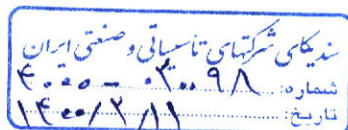 سندیکای شرکتهای تأسیساتی و صنعتی ایران
شماره: ۴۰۰۰ - ۰۳۰۰۹۸
تاریخ: ۱۴۰۰/۳/۱۱